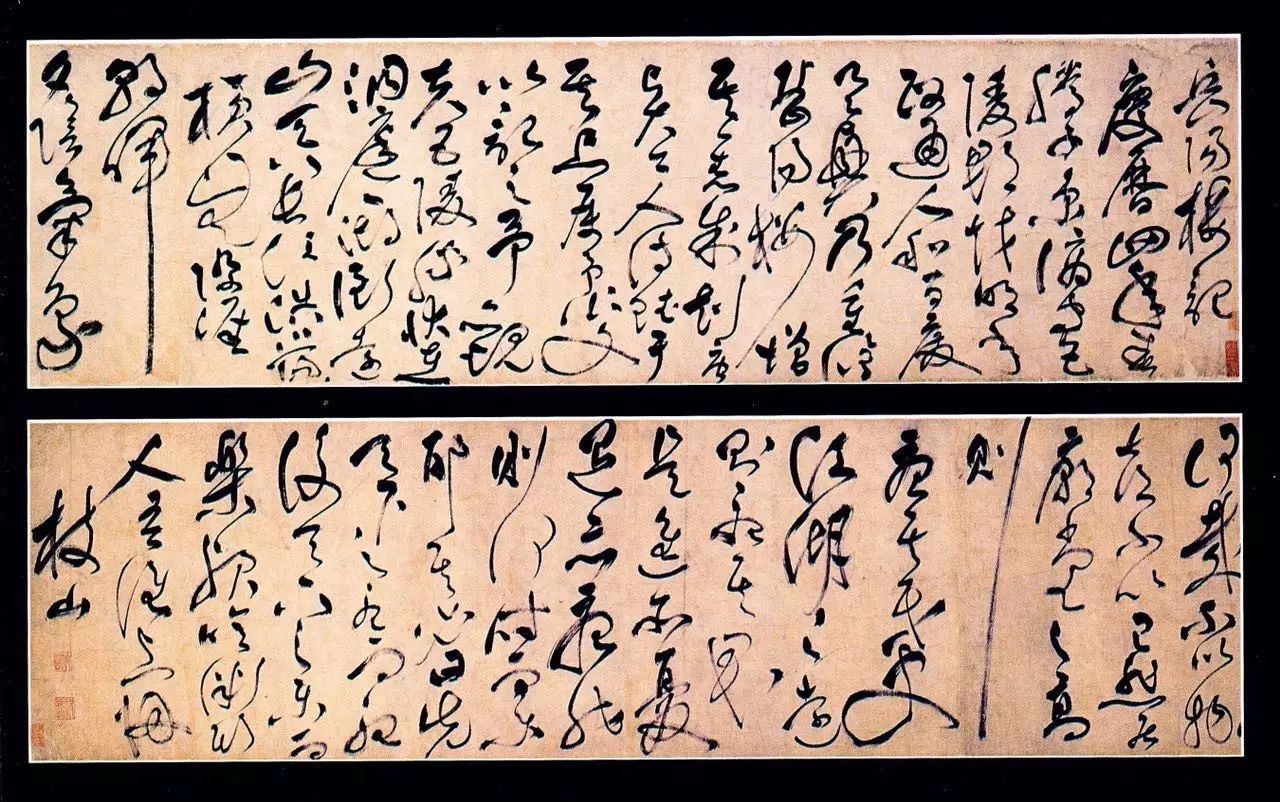 岳陽樓記
慶曆四年春
滕子京謫守巴
陵郡越明年
政通人和百廢
具興乃重修
岳陽樓增
其舊制刻唐
賢今人詩賦于
其上屬予作文
以記之予觀
夫巴陵勝狀在
洞庭一湖銜遠
山吞長江浩浩湯湯
橫無際涯
朝暉
夕陰氣象
何哉不以物
喜不以己悲居
廟堂之高
則
憂其民處
江湖之遠
則憂其君
是進亦憂
退亦憂然
則何時而樂
耶其必曰先
天下之憂而憂
後天下之樂而
樂歟噫微斯
人吾誰與歸
枝山